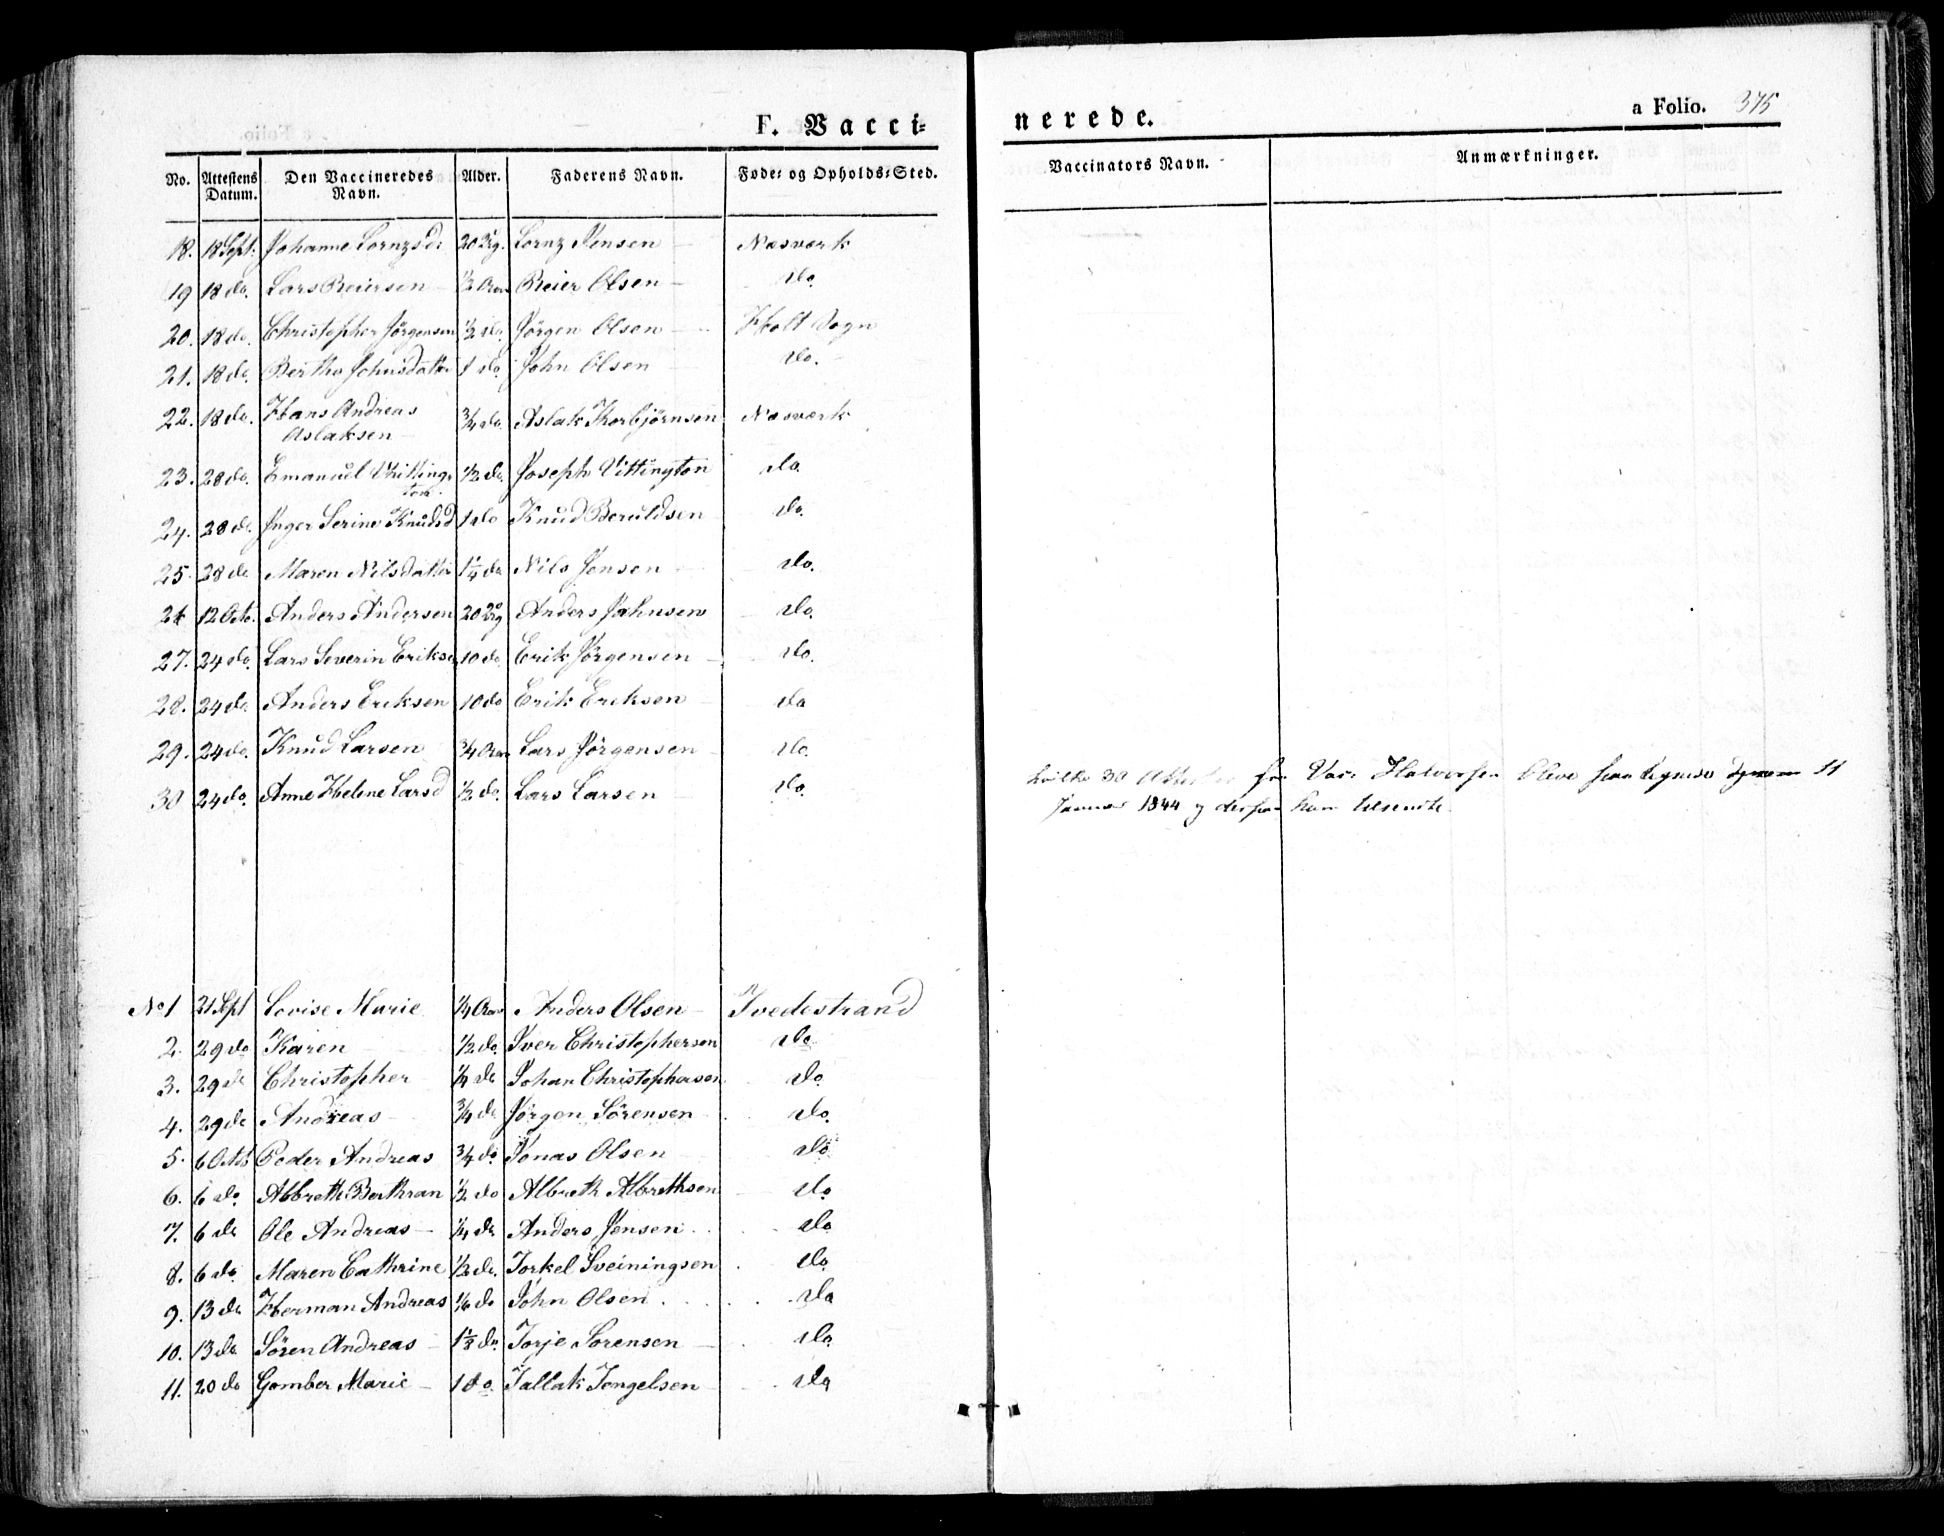 F. Vacci=
nerede.
a Folio. 375
No. Attestens Datum. Den Vaccineredes Navn. Alder. Faderens Navn. Føde= og Opholds=Sted. Vaccinators Navn. Anmærkninger.
18. 18 Sept: Johanne Lornzsdr Lornz Jensen — Næsværk
19 18 do. Lars Reiersen — 1/2 Reier Olsen — Do
20. 18 do. Christopher Jörgensen 1/2 do. Jörgen Olsen — Holt Sogn
21. 18 do. Berthe Johnsdatter 1 do. John Olsen Do.
22. 18 do. Hans Andreas 3/4 do. Aslak Thorbjörnsen Næsværk
Aslaksen —
23. 28 do. Emanuel Whitting= 1/2 do. Joseph Vittington do
ton.
24. 28 do. Inger Serine Knudsd 1 do Knud Beruldsen do.
25. 28 do Maren Nilsdatter 1 1/4 do Nils Jensen Do.
26 12 Octo. Anders Andersen Anders Jahnsen Do.
27. 24 do. Lars Severin Erikse 10 do. Erik Jörgensen — Do.
28. 24 do. Anders Eriksen 10 do Erik Eriksen — do
29. 24 do. Knud Larsen 3/4 Lars Jörgensen — Do.
30 24 do. Anne Helene Larsd 1/2 do. Lars Larsen — Do.
hvilke 30 Attester Halvorsen Bleve 11
Januar 1844 ham tilsendte.
No 1 21 Sept Lovise Marie 1/4 Anders Olsen — Tvedestrand
2. 29 do Karen 1/2 do. Iver Christophersen Do
3. 29 do Christopher 1/4 do Johan Christophersen Do
4. 29 do Andreas — 3/4 do Jörgen Sörensen Do
5. 6 Octob Peder Andreas 3/4 do Jonas Olsen Do
6. 6 do Albreth Berthran 1/2 do Albreth Albrethsen Do
7. 6 do Ole Andreas — 1/4 do Anders Jensen Do
8. 6 do Maren Cathrine 1/2 do. Torkel Sveiningsen Do
9. 13 do Herman Andreas 1/6 do John Olsen Do
10. 13 do Sören Andreas — do. Torje Sorensen — Do
11. 20 do Gomber Marie — 1 do. Tallak Tengelsen Do